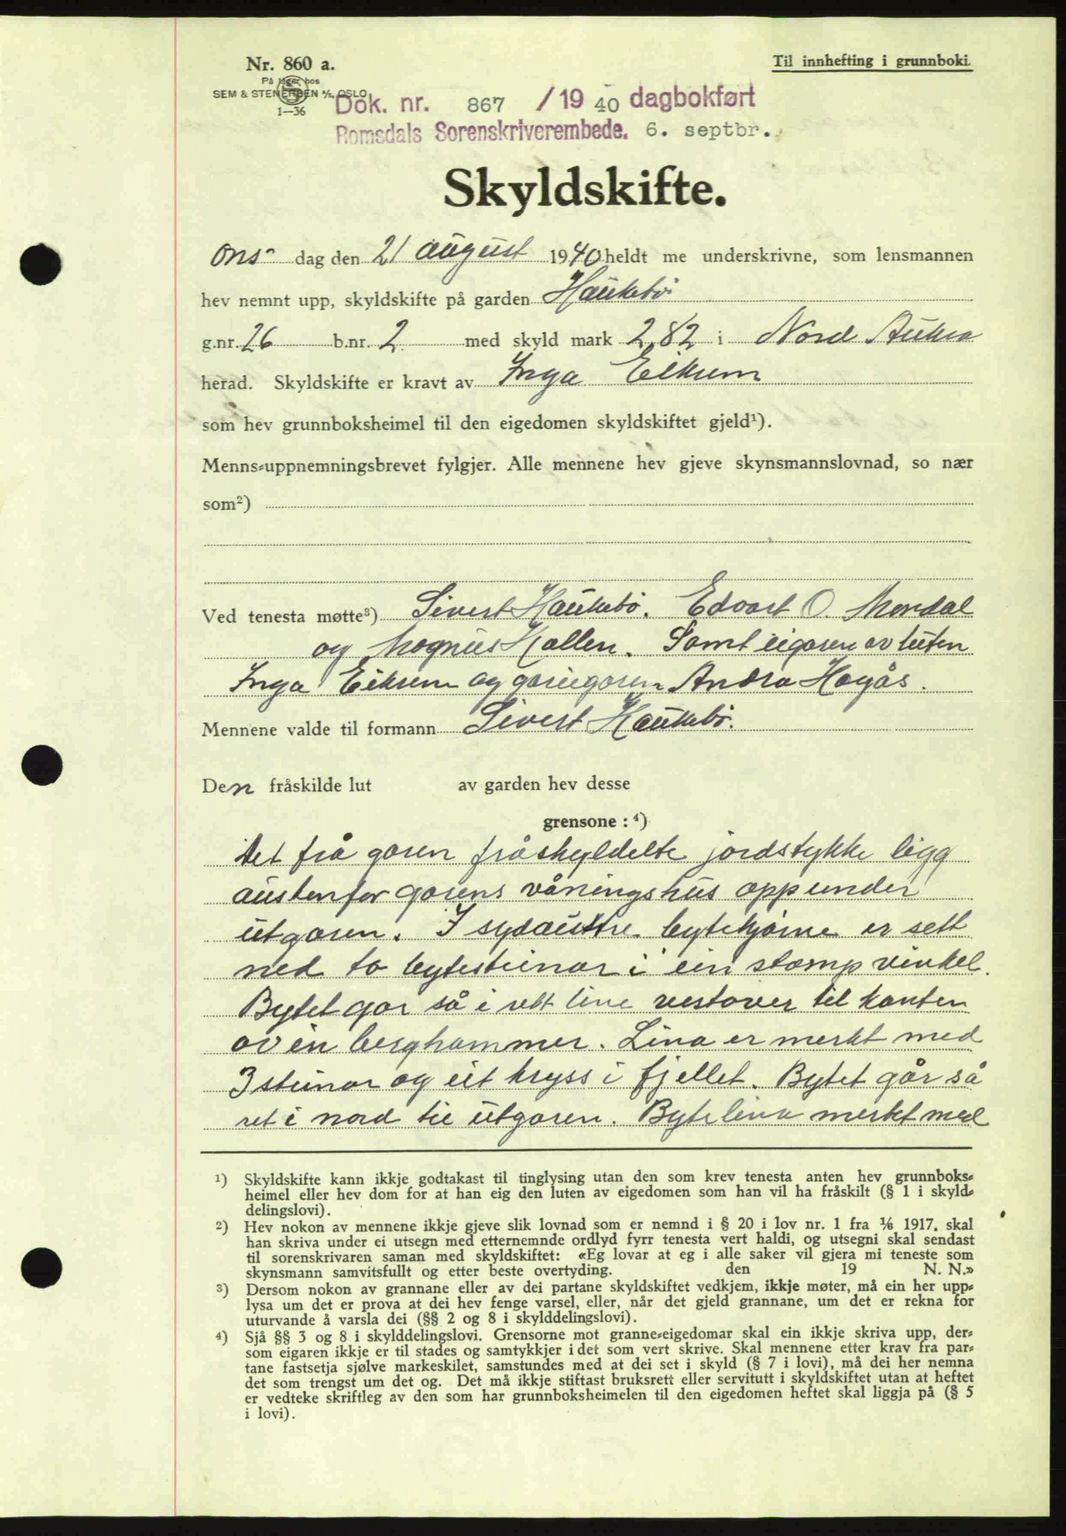 Nr. 860 a.
Til innhefting i grunnboki.
På lager hos
SEM & STENERSEN A/S, OSLO
1—36
Dok. nr. 867 / 19 40 dagbokført
Romsdals Sorenskriverembede. 6. septbr.
Skyldskifte.
Ons- dag den 21 august 1940 heldt me underskrivne, som lensmannen
hev nemnt upp, skyldskifte på garden Haukebø
g.nr. 26 b.nr. 2 med skyld mark 2,82 i Nord Aukra
herad. Skyldskifte er kravt av Inga Eikrem
som hev grunnboksheimel til den eigedomen skyldskiftet gjeld¹).
Menns-uppnemningsbrevet fylgjer. Alle mennene hev gjeve skynsmannslovnad, so nær
som²)
Ved tenesta møtte³) Sivert Haukebø. Edvart O. Mordal
og Magnus Hallen. Samt eigaren av luten
Inga Eikrem og gareigaren Andra Hagås.
Mennene valde til formann Sivert Haukebø.
Den fråskilde lut av garden hev desse
grensone : ⁴)
Det frå garen fråskyldelte jordstykke ligg
austenfor garens våningshus opp under
utgaren. I sydaustre bytehjørne er sett
ned to bytesteinar i ein stomp vinkel.
Bytet gar så i rett line vestover til kanten
av ein berghammer. Lina er merkt med
3 steinar og eit kryss i fjellet. Bytet går så
ret i nord til utgaren. Bytelina merkt med
¹) Skyldskifte kann ikkje godtakast til tinglysing utan den som krev tenesta anten hev grunnboks-
heimel eller hev dom for at han eig den luten av eigedomen som han vil ha fråskilt (§ 1 i skyld-
delingslovi).
²) Hev nokon av mennene ikkje gjeve slik lovnad som er nemnd i § 20 i lov nr. 1 fra 1/6 1917, skal
han skriva under ei utsegn med etternemnde ordlyd fyrr tenesta vert haldi, og utsegni skal sendast
til sorenskrivaren saman med skyldskiftet: «Eg lovar at eg i alle saker vil gjera mi teneste som
skynsmann samvitsfullt og etter beste overtyding. den 19 N. N.»
³) Dersom nokon av grannane eller av dei partane skyldskiftet vedkjem, ikkje møter, må ein her upp-
lysa um det er prova at dei hev fenge varsel, eller, når det gjeld grannane, um det er rekna for
uturvande å varsla dei (§§ 2 og 8 i skylddelingslovi).
⁴) Sjå §§ 3 og 8 i skylddelingslovi. Grensorne mot granne-eigedomar skal ein ikkje skriva upp, der-
som eigaren ikkje er til stades og samtykkjer i det som vert skrive. Skal mennene etter krav fra par-
tane fastsetja sjølve markeskilet, samstundes med at dei set i skyld (§ 7 i lovi), må dei her nemna
det som trengst um det og. Det må ikkje stiftast bruksrett eller servitutt i skyldskiftet utan at heftet
er vedteke skriftleg av den som har grunnboksheimelen til den eigedomen heftet skal liggja på (§ 5
i lovi).